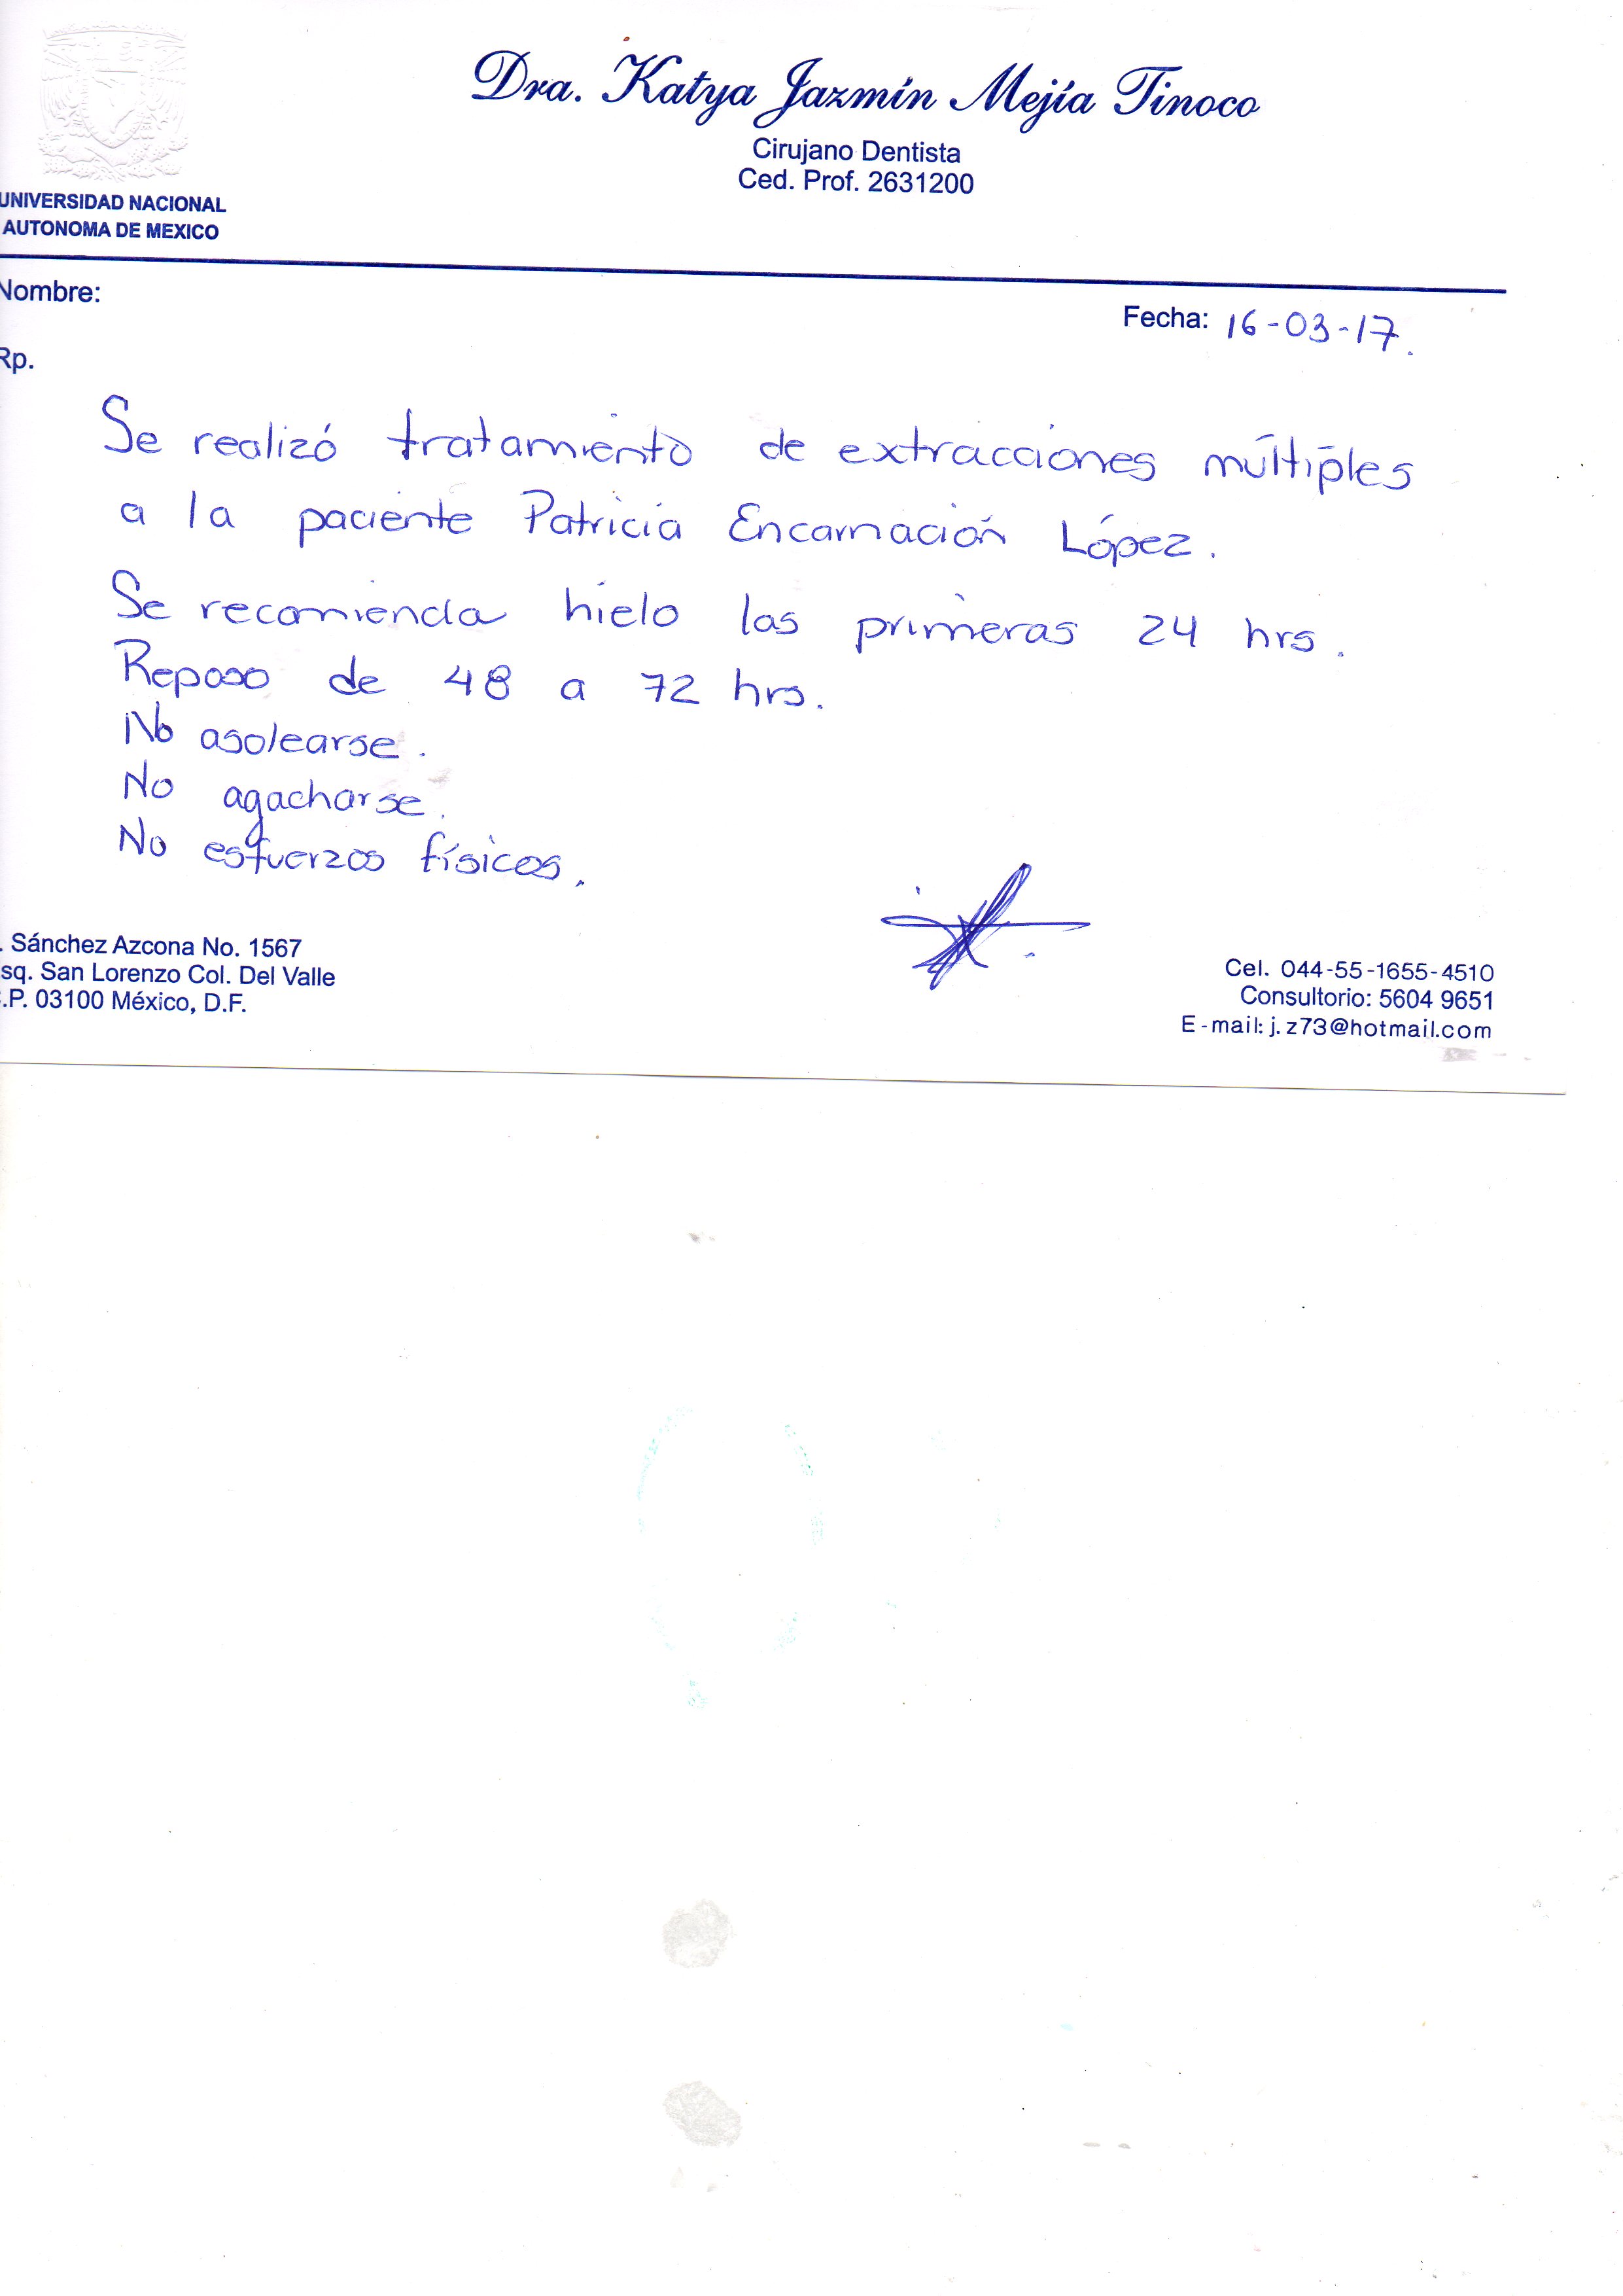 Dra. Katya Jazmín Mejía Tinoco
Cirujano Dentista
Ced. Prof. 2631200
UNIVERSIDAD NACIONAL
AUTONOMA DE MEXICO
Nombre:
Fecha: 16-03-17.
Rp.
Se realizó tratamiento de extracciones múltiples
a la paciente Patricia Encarnación López.
Se recomienda hielo las primeras 24 hrs.
Reposo de 48 a 72 hrs.
No asolearse.
No agacharse.
No esfuerzos físicos.
. Sánchez Azcona No. 1567
sq. San Lorenzo Col. Del Valle
.P. 03100 México, D.F.
Cel. 044-55-1655-4510
Consultorio: 5604 9651
E-mail: j.z73@hotmail.com